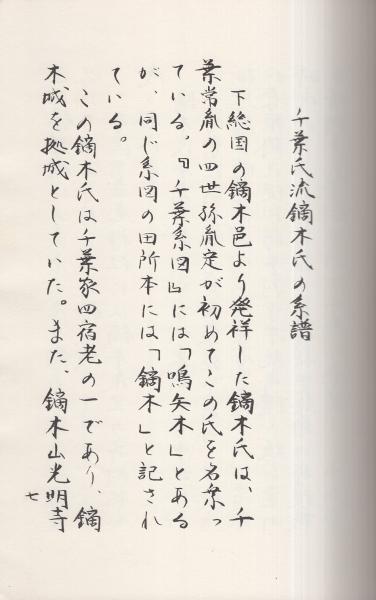 千葉氏流鏑木氏の系譜
下総国の鏑木邑より発祥した鏑木氏は、千
葉常胤の四世孫胤定が初めてこの氏を名乗っ
ている。『千葉系図』には「鳴矢木」とある
が、同じ系図の田所本には「鏑木」と記され
ている。
この鏑木氏は千葉家四宿老の一であり、鏑
木城を拠城としていた。また、鏑木山光明寺
七